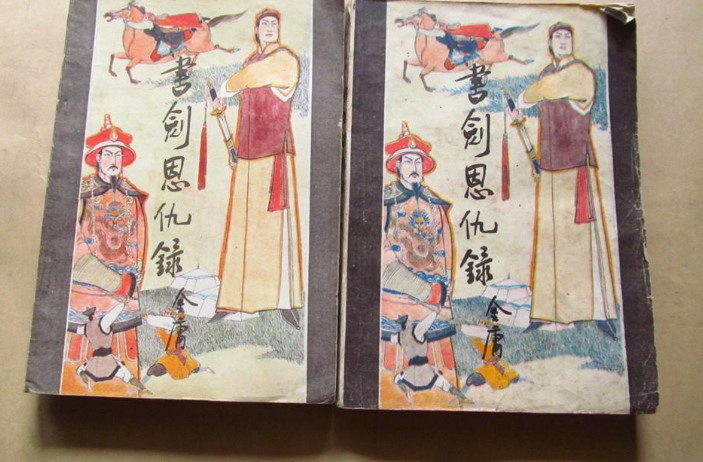 書剑恩仇録
金庸
書剑恩仇録
金庸